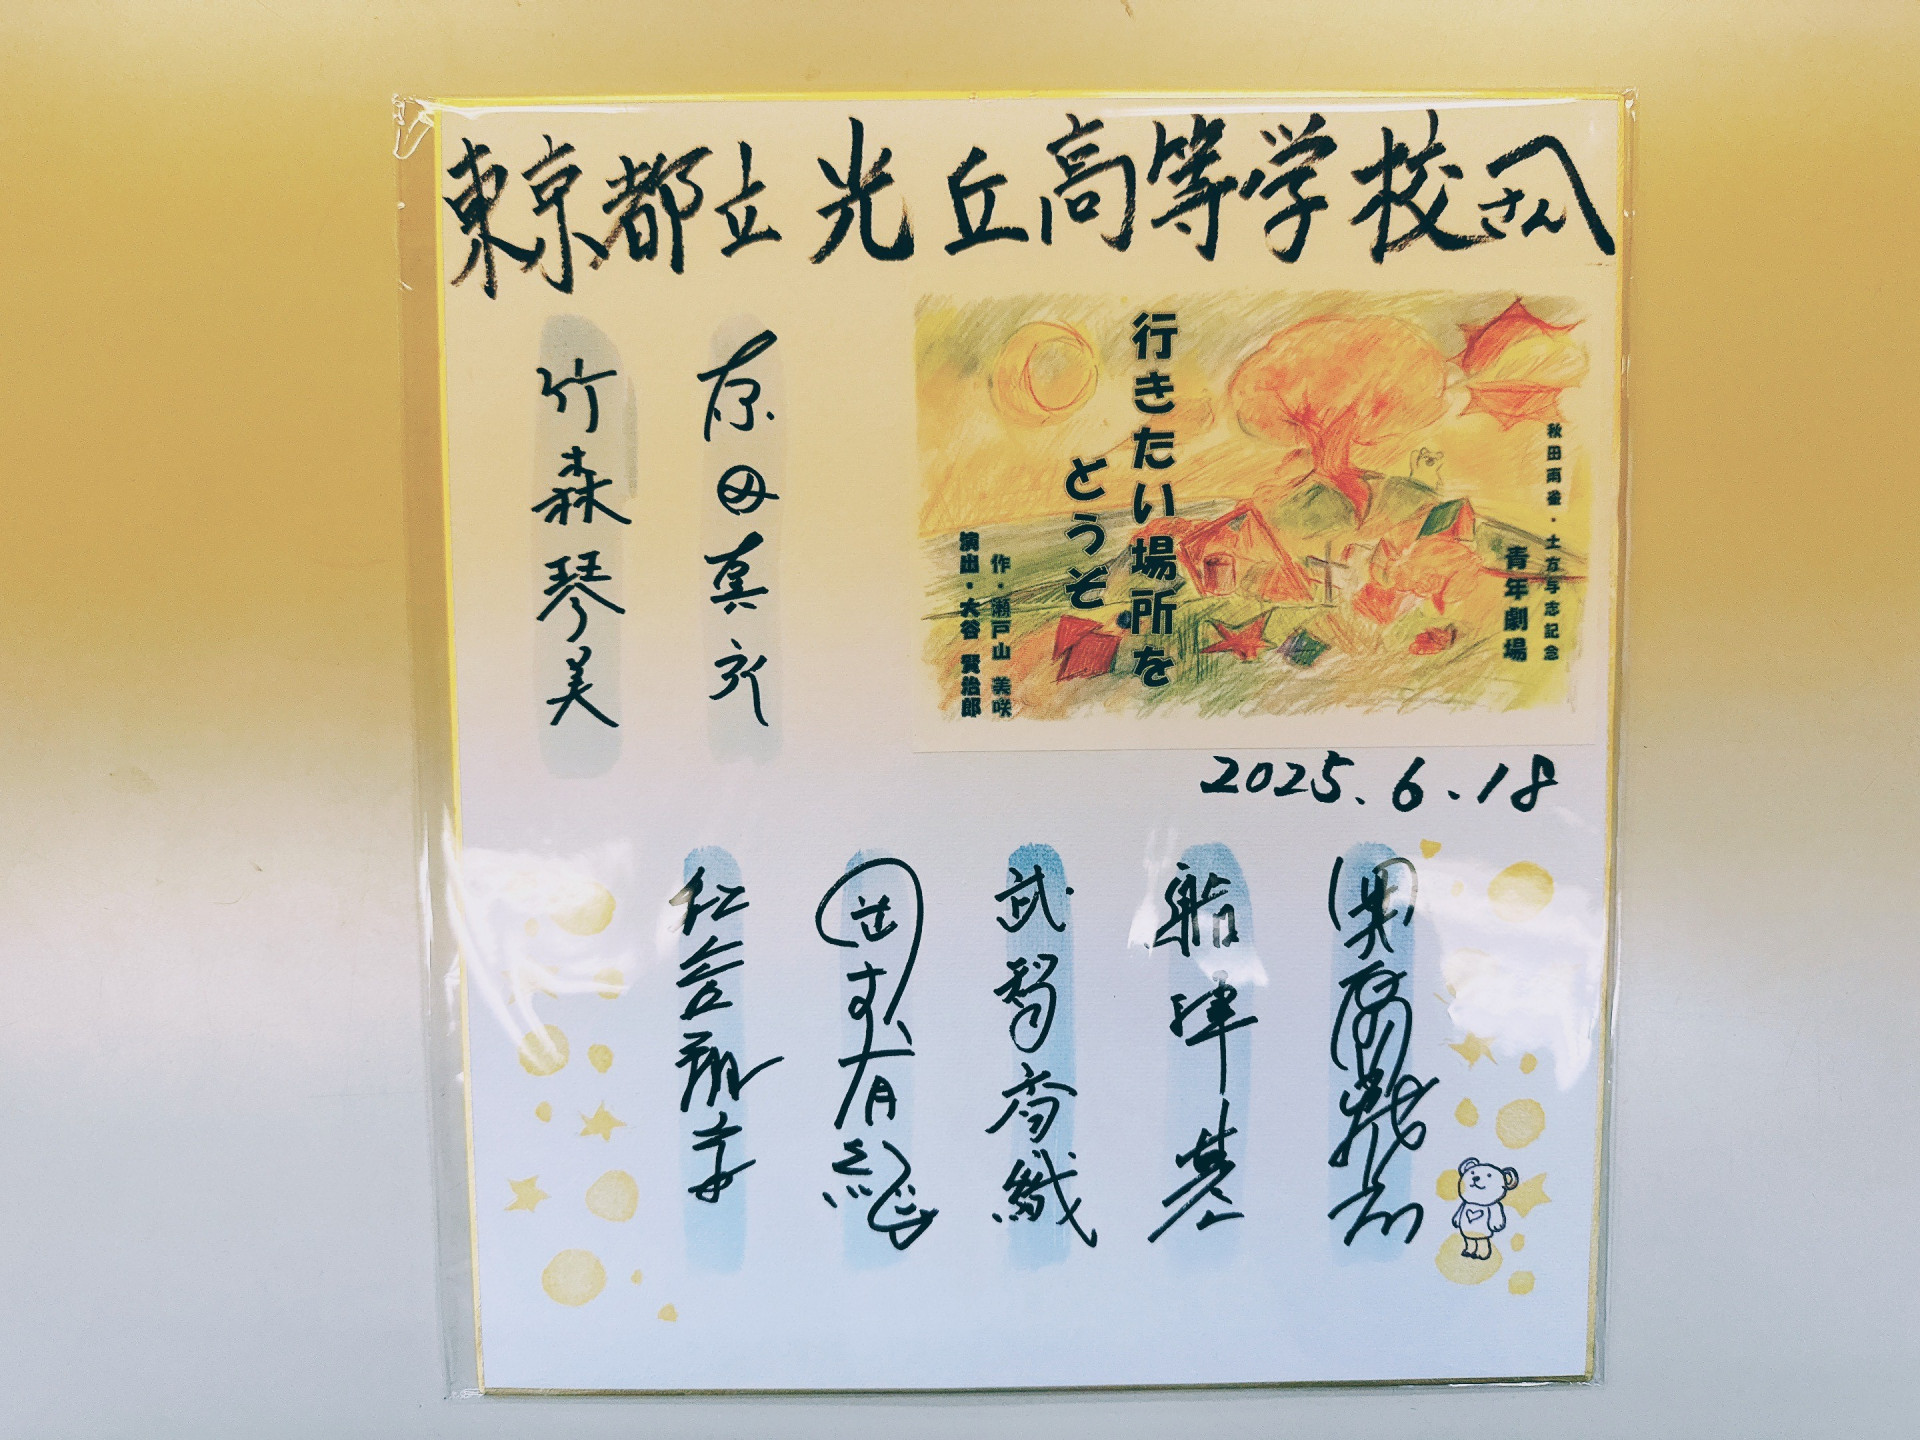 東京都立光丘高等学校さんへ
秋田雨雀・土方与志記念
青年劇場
行きたい場所を
どうぞ
作・瀬戸山 美咲
演出・大谷 賢治郎
2025.6.18
船津基
武智香織
竹森琴美